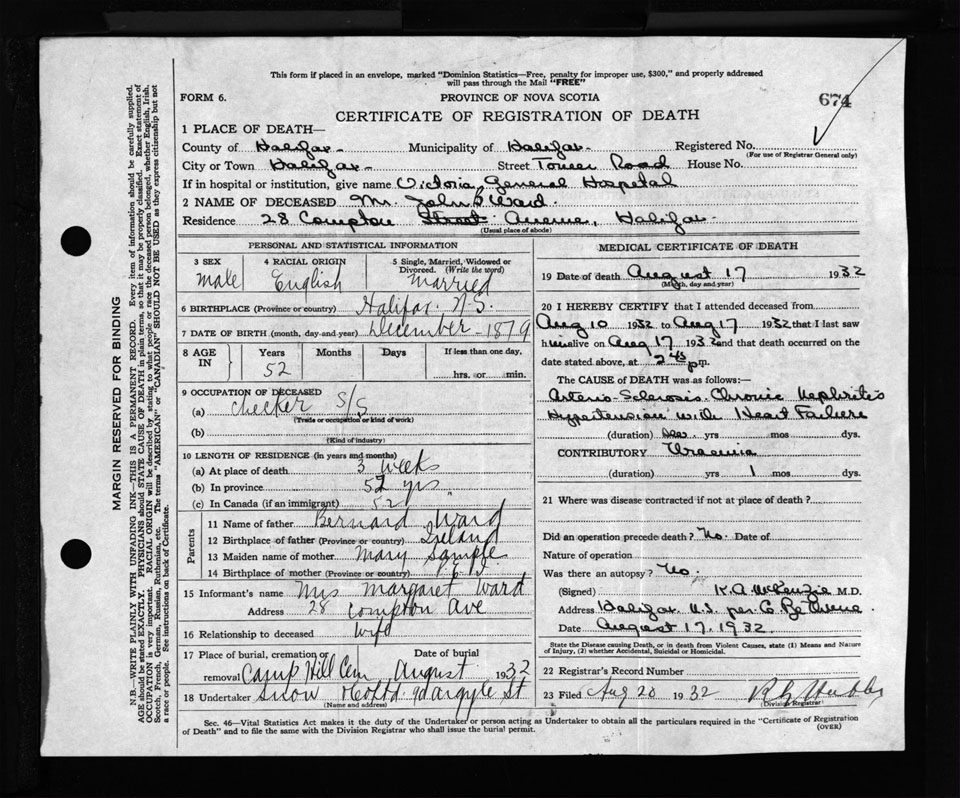 This form if placed in an envelope, marked "Dominion Statistics—Free, penalty for improper use, $300," and properly addressed
will pass through the Mail "FREE"
FORM 6.
PROVINCE OF NOVA SCOTIA
674
CERTIFICATE OF REGISTRATION OF DEATH
1 PLACE OF DEATH—
County of Halifax - Municipality of Halifax - Registered No.
(For use of Registrar General only)
City or Town Halifax - Street Tower Road House No.
If in hospital or institution, give name Victoria General Hospital
2 NAME OF DECEASED Mr. John Ward.
Residence 28 Compton Street Avenue, Halifax.
(Usual place of abode)
PERSONAL AND STATISTICAL INFORMATION
3 SEX 4 RACIAL ORIGIN 5 Single, Married, Widowed or
Divorced. (Write the word)
Male English Married
6 BIRTHPLACE (Province or country) Halifax N.S.
7 DATE OF BIRTH (month, day and year) December - 1879
8 AGE IN Years Months Days If less than one day,
52
hrs. or min.
9 OCCUPATION OF DECEASED
(a) Checker S/S
(Trade or occupation or kind of work)
(b)
(Kind of industry)
10 LENGTH OF RESIDENCE (in years and months)
(a) At place of death 3 weeks
(b) In province 52 yrs
(c) In Canada (if an immigrant) 52 "
Parents
11 Name of father Bernard Ward
12 Birthplace of father (Province or country) Ireland
13 Maiden name of mother Mary Sample
14 Birthplace of mother (Province or country) P.E.I.
15 Informant's name Mrs Margaret Ward
Address 28 Compton Ave
16 Relationship to deceased Wife
17 Place of burial, cremation or removal Date of burial
Camp Hill Cem August 1932
18 Undertaker Snow 90 Argyle St
(Name and address)
MEDICAL CERTIFICATE OF DEATH
19 Date of death August 17 1932
(Month, day and year)
20 I HEREBY CERTIFY that I attended deceased from
Aug 10 1932 to Aug 17 1932 that I last saw
him alive on Aug 17 1932 and that death occurred on the
date stated above, at 2 45 p m.
The CAUSE OF DEATH was as follows:—
Arterio-Sclerosis. Chronic Nephritis
Hypertension with Heart Failure
(duration) yrs mos dys.
CONTRIBUTORY Uraemia
(duration) yrs 1 mos dys.
21 Where was disease contracted if not at place of death?
Did an operation precede death? No. Date of
Nature of operation
Was there an autopsy? No.
(Signed) K.A. McKenzie M.D.
Address Halifax N.S. per G.
Date August 17, 1932.
State the Disease causing Death, or in death from Violent Causes, state (1) Means and
Nature of Injury, (2) whether Accidental, Suicidal or Homicidal.
22 Registrar's Record Number
23 Filed Aug 20 1932
(Division Registrar)
Sec. 46—Vital Statistics Act makes it the duty of the Undertaker or person acting as Undertaker to obtain all the particulars required in the "Certificate of Registration
of Death" and to file the same with the Division Registrar who shall issue the burial permit.
(OVER)
MARGIN RESERVED FOR BINDING
N.B.—WRITE PLAINLY WITH UNFADING INK—THIS IS A PERMANENT RECORD. Every item of information should be carefully supplied.
AGE should be stated EXACTLY. PHYSICIANS should STATE CAUSE OF DEATH in plain terms, so that it may be properly classified. Exact statement of
OCCUPATION is very important. RACIAL ORIGIN will be described by stating to what people or race the deceased person belonged, whether English, Irish,
Scotch, French, German, Russian, Ruthenian, etc. The terms "AMERICAN" or "CANADIAN" SHOULD NOT BE USED as they express citizenship but not
a race or people. See instructions on back of Certificate.